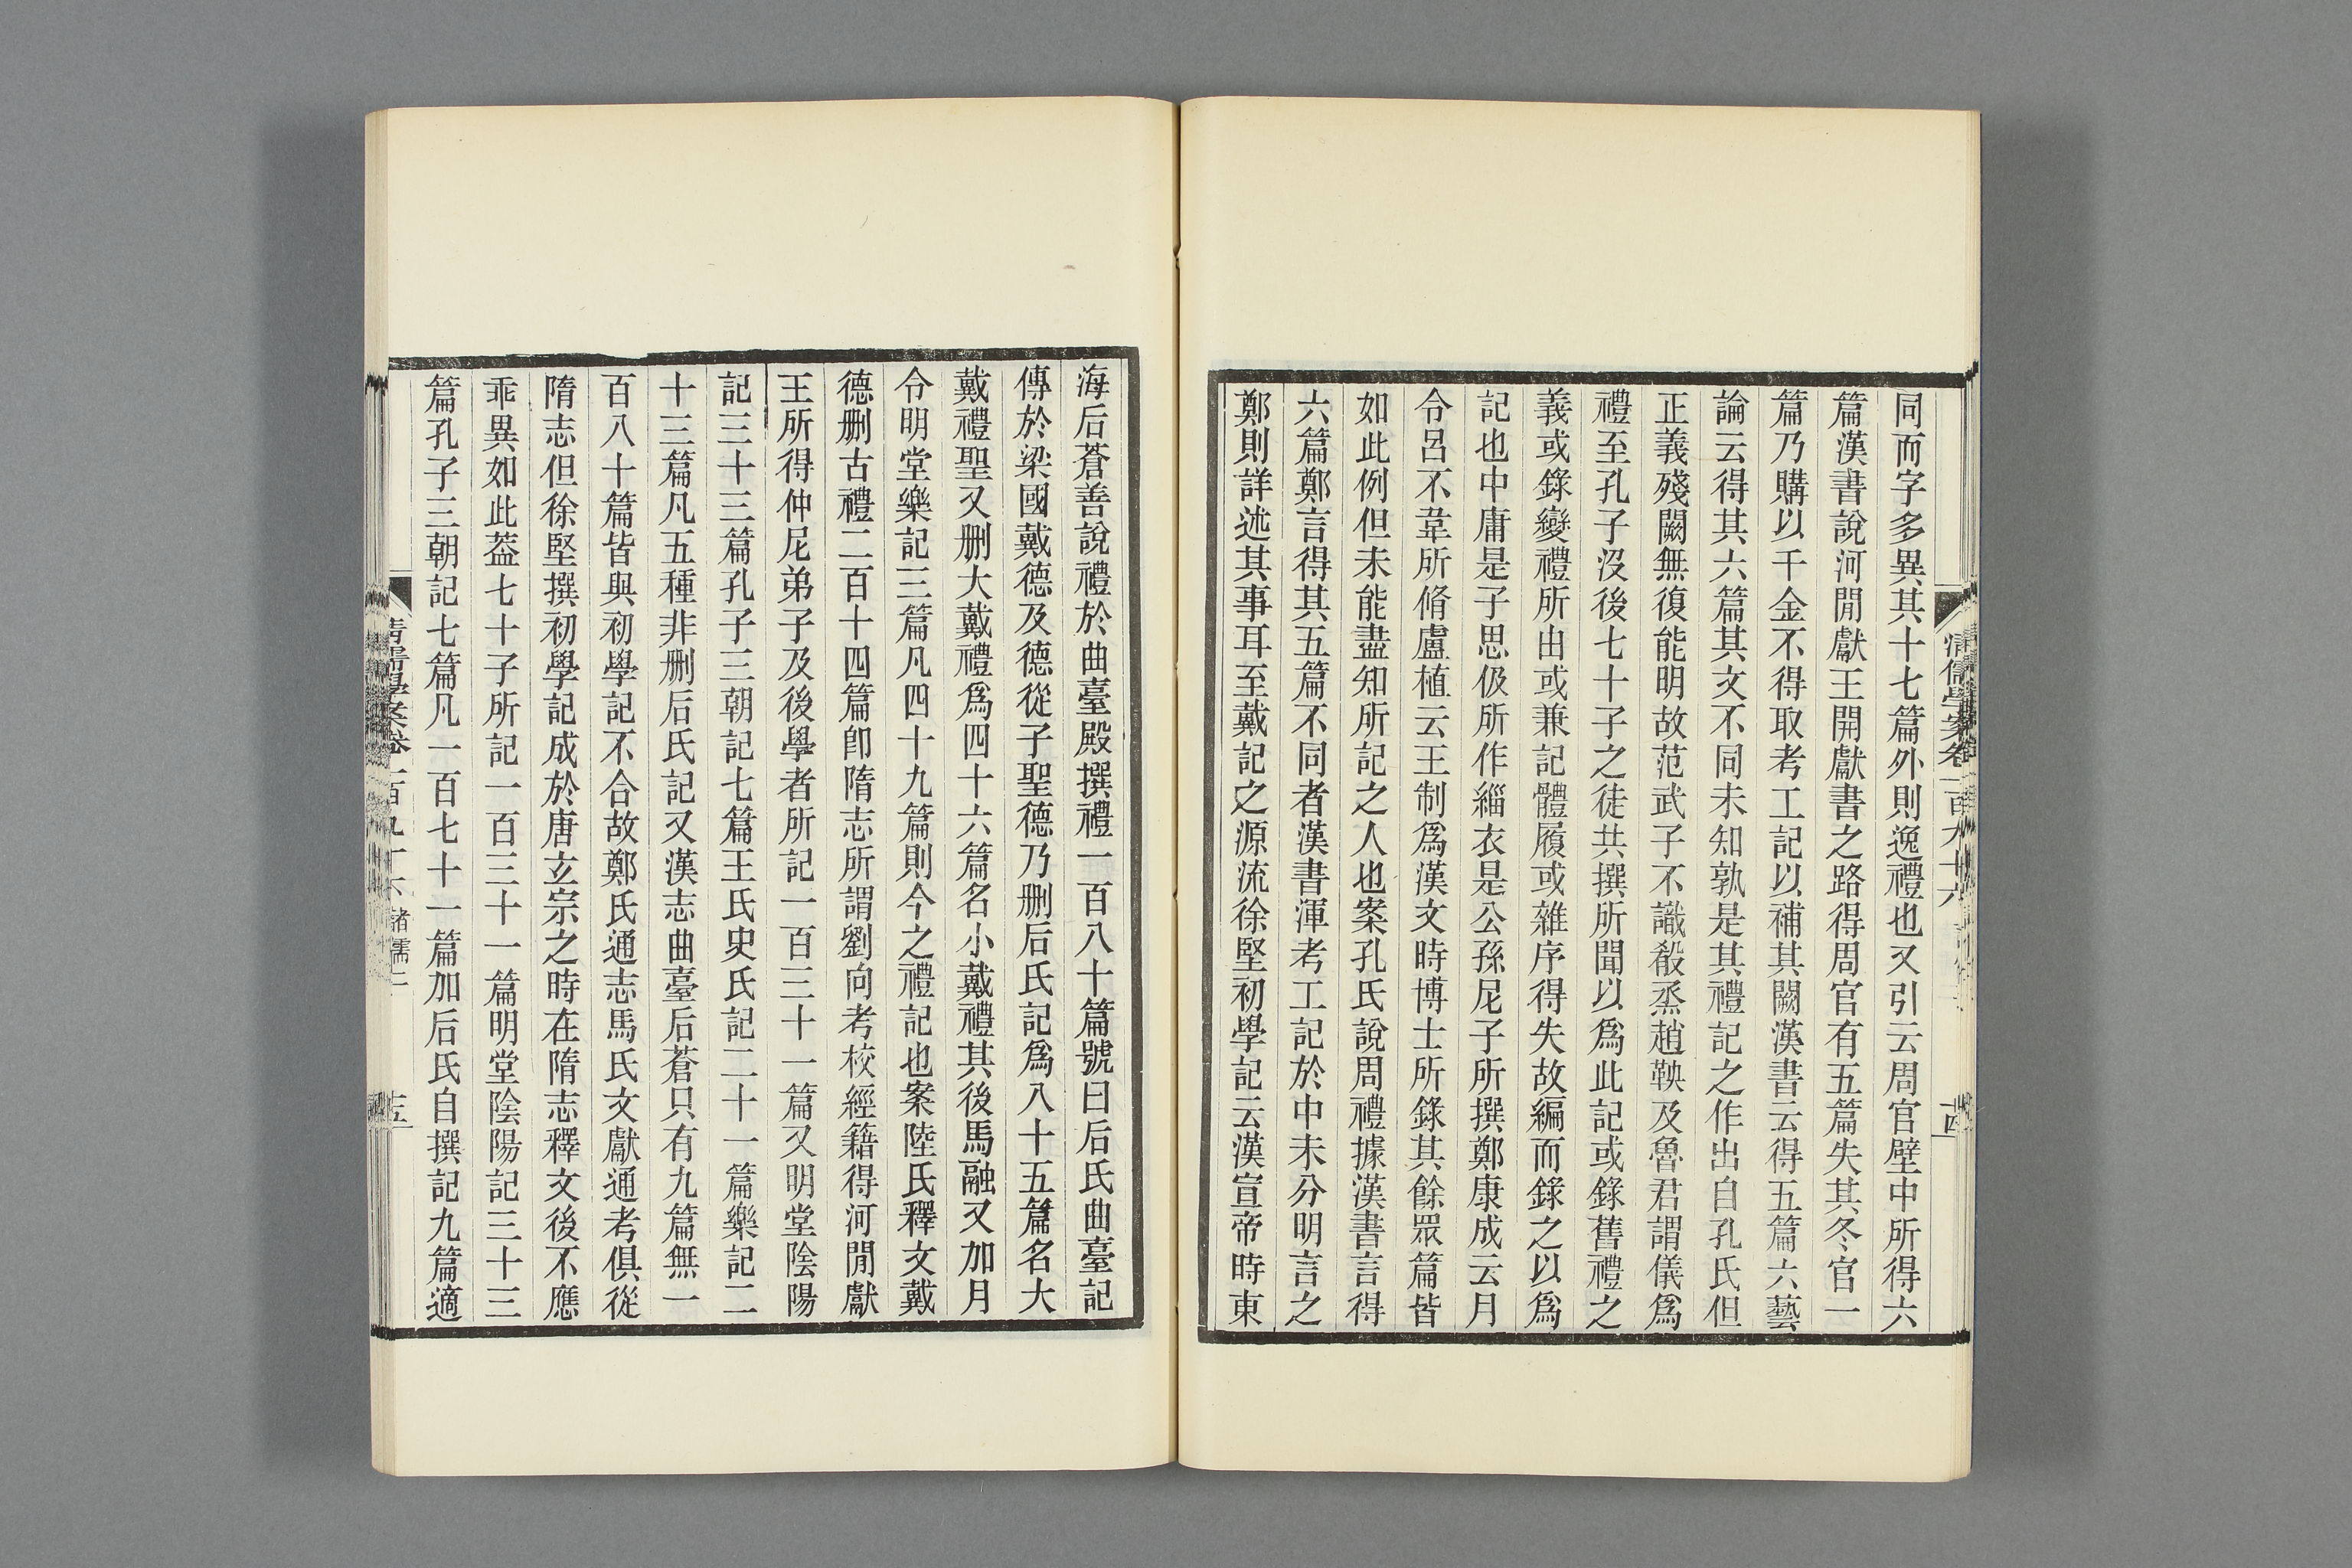 同而字多異其十七篇外則逸禮也又引云周官壁中所得六
篇漢書說河閒獻王開獻書之路得周官有五篇失其冬官一
篇乃購以千金不得取考工記以補其闕漢書云得五篇六藝
論云得其六篇其文不同未知孰是其禮記之作出自孔氏但
正義殘闕無復能明故范武子不識殽烝趙鞅及魯君謂儀爲
禮至孔子沒後七十子之徒共撰所聞以爲此記或錄舊禮之
義或錄變禮所由或兼記體履或雜序得失故編而錄之以爲
記也中庸是子思伋所作緇衣是公孫尼子所撰鄭康成云月
令呂不韋所脩盧植云王制爲漢文時博士所錄其餘眾篇皆
如此例但未能盡知所記之人也案孔氏說周禮據漢書言得
六篇鄭言得其五篇不同者漢書渾考工記於中未分明言之
鄭則詳述其事耳至戴記之源流徐堅初學記云漢宣帝時東
清儒學案卷一百九十六
十四
海后蒼善說禮於曲臺殿撰禮一百八十篇號曰后氏曲臺記
傳於梁國戴德及德從子聖德乃刪后氏記爲八十五篇名大
戴禮聖又刪大戴禮爲四十六篇名小戴禮其後馬融又加月
令明堂樂記三篇凡四十九篇則今之禮記也案陸氏釋文戴
德刪古禮二百十四篇卽隋志所謂劉向考校經籍得河閒獻
王所得仲尼弟子及後學者所記一百三十一篇又明堂陰陽
記三十三篇孔子三朝記七篇王氏史氏記二十一篇樂記二
十三篇凡五種非刪后氏記又漢志曲臺后蒼只有九篇無一
百八十篇皆與初學記不合故鄭氏通志馬氏文獻通考俱從
隋志但徐堅撰初學記成於唐玄宗之時在隋志釋文後不應
乖異如此葢七十子所記一百三十一篇明堂陰陽記三十三
篇孔子三朝記七篇凡一百七十一篇加后氏自撰記九篇適
清儒學案卷一百九十六 諸儒二
十五